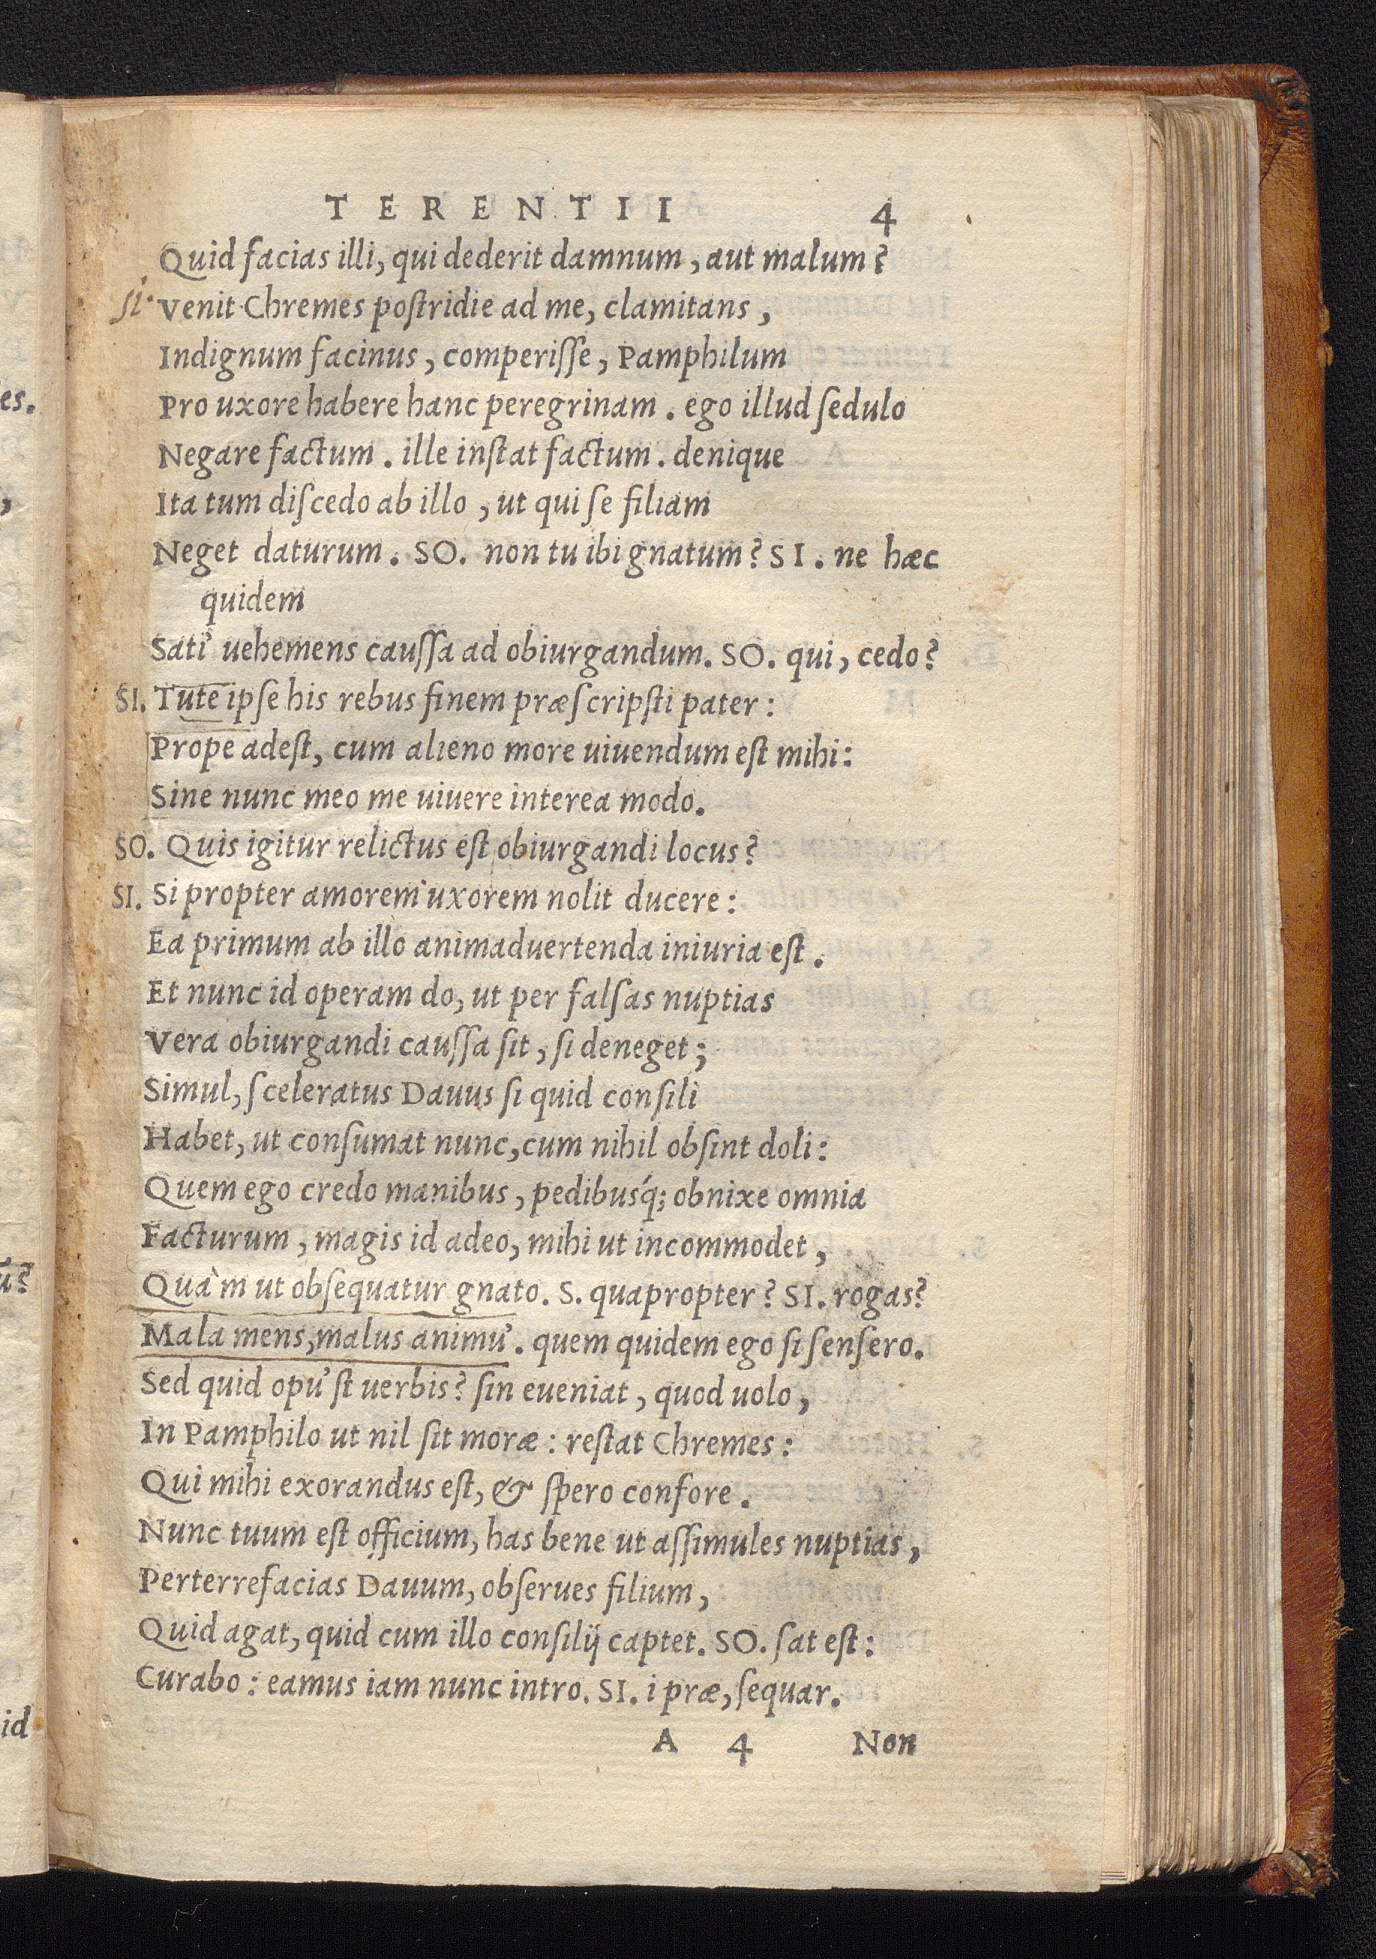 TERENTII 4
Quid facias illi, qui dederit damnum, aut malum?
si. Venit Chremes postridie ad me, clamitans,
Indignum facinus, comperisse, Pamphilum
Pro uxore habere hanc peregrinam. ego illud sedulo
Negare factum. ille instat factum. denique
Ita tum discedo ab illo, ut qui se filiam
Neget daturum. SO. non tu ibi gnatum? SI. ne hæc
quidem
Sati' uehemens caussa ad obiurgandum. SO. qui, cedo?
SI. Tute ipse his rebus finem præscripsti pater:
Prope adest, cum alieno more uiuendum est mihi:
Sine nunc meo me uiuere interea modo.
SO. Quis igitur relictus est obiurgandi locus?
SI. Si propter amorem uxorem nolit ducere:
Ea primum ab illo animaduertenda iniuria est.
Et nunc id operam do, ut per falsas nuptias
Vera obiurgandi caussa sit, si deneget;
Simul, sceleratus Dauus si quid consili
Habet, ut consumat nunc, cum nihil obsint doli:
Quem ego credo manibus, pedibusq́; obnixe omnia
Facturum, magis id adeo, mihi ut incommodet,
Quàm ut obsequatur gnato. S. quapropter? SI. rogas?
Mala mens, malus animu'. quem quidem ego si sensero.
Sed quid opu'st uerbis? sin eueniat, quod uolo,
In Pamphilo ut nil sit moræ: restat Chremes:
Qui mihi exorandus est, & spero confore.
Nunc tuum est officium, has bene ut assimules nuptias,
Perterrefacias Dauum, obserues filium,
Quid agat, quid cum illo consilij captet. SO. sat est:
Curabo: eamus iam nunc intro. SI. i præ, sequar.
A 4 Non
es.
,
ũ?
id